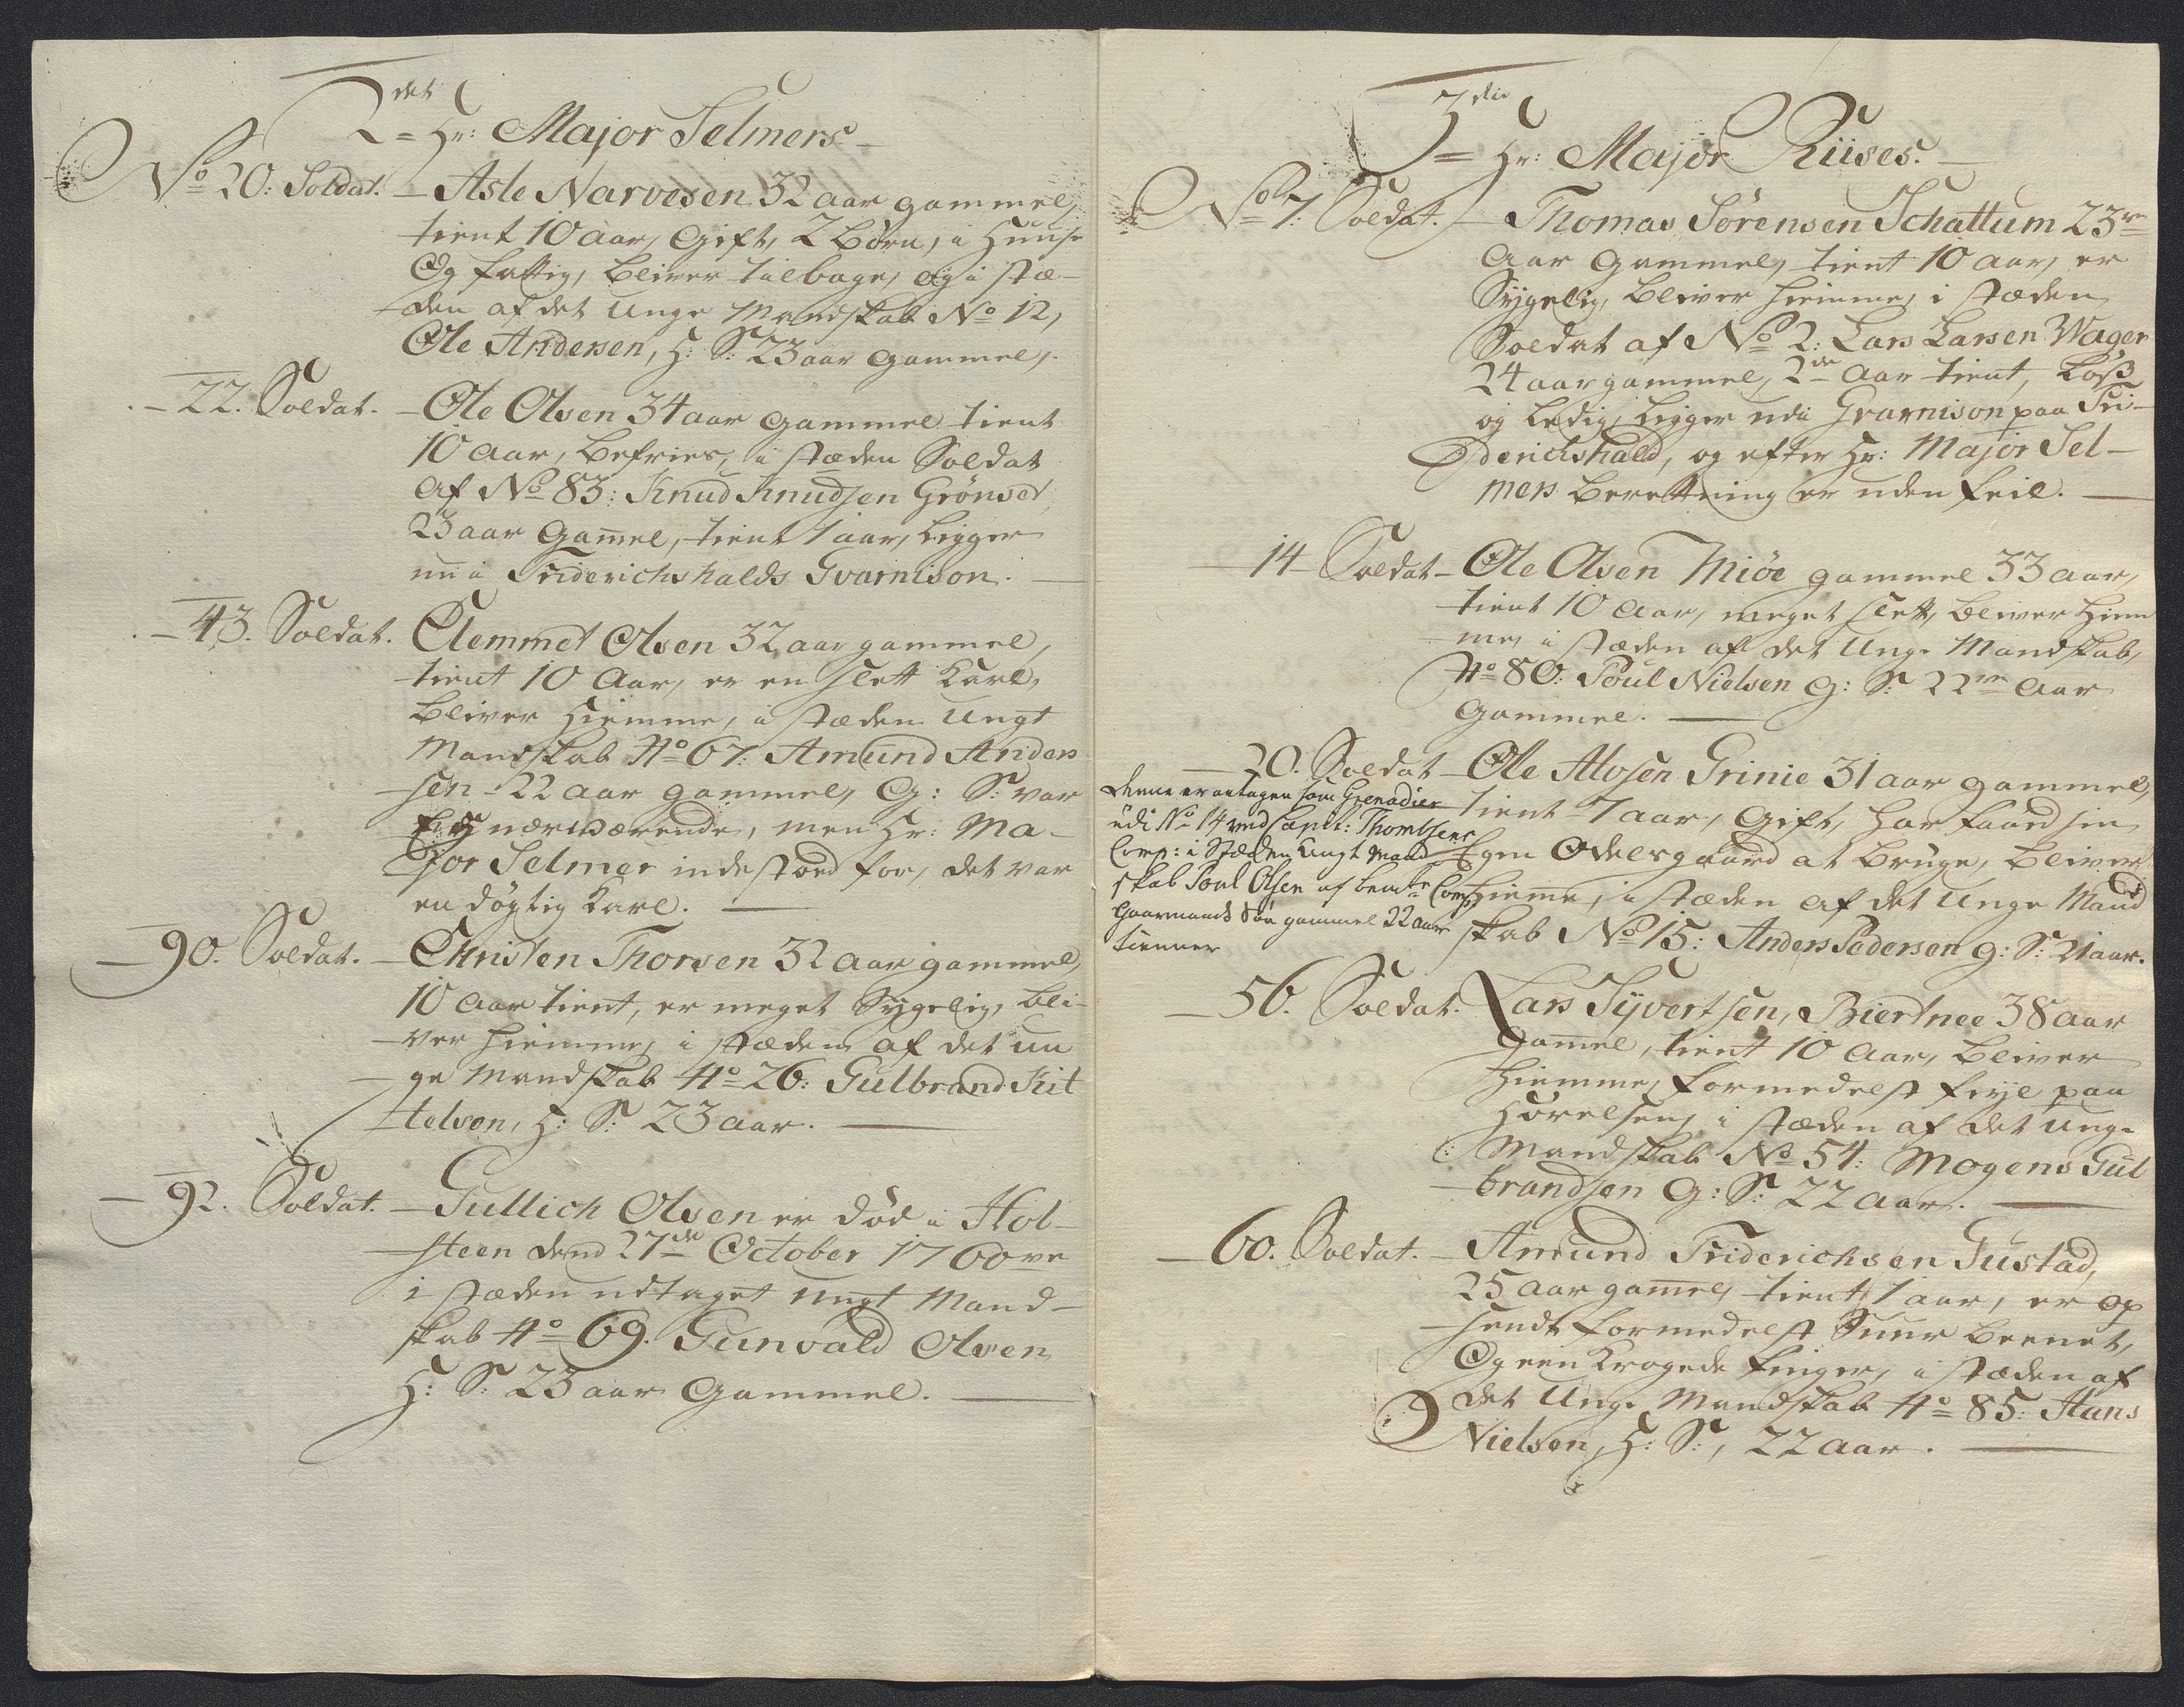 2det
Hr: Major Selmers
No 20: Soldat. Asle Narvesen 32 aar gammel,
tient 10 aar, Gift, 2 Börn, i Huuse
Og fattig, bliver tilbage, og i stæ-
den af det unge Mandskab No 12,
Ole Andersen, H: S: 23 aar gammel,
22. Soldat. Ole Olsen 34 aar gammel tient
10 aar, befries, i stæden Soldat
af No 83: Knud Knudsen Grönsed
23 aar gam̄el, tient 1 aar, ligger
nu i Friderichshalds Gvarnison.
43. Soldat. Clemmet Olsen 32 aar gammel,
tient 10 Aar, er en slett Karl,
bliver Hiemme, i stæden ungt
Mandskab No 67: Amund Anders
sen 22 aar gammel, G: S: var
Ey nærwærende, men Hr: Ma-
jor Selmer indestoed for, det var
en dögtig Karl.
90. Soldat. Christen Thorsen 32 aar gammel,
10 aar tient, er meget Sygelig, bli-
ver hiemme, i stæden af det un
ge Mandskab No 26: Gulbrand Kit
telsen, H: S: 23 aar.
92. Soldat. Gullich Olsen er död i Hol-
steen dend 27de October 1760ve
i stæden udtaget ungt Mand-
skab No 69. Gunvald Olsen
H: S: 23 aar Gammel.
3die
Hr: Major Riises.
No 7: Soldat. Thomas Sörensen Schattum 23ve
Aar gammel, tient 10 aar, er
Sygelig, bliver hiemme, i stæden
Soldat af No 2: Lars Larsen Wager
24 aar gammel, 2de Aar tient, Löß
og ledig, ligger udi Gvarnison paa Fri-
derichshald, og efter Hr: Major Sel-
mers berettning er uden feil.
14 Soldat Ole Olsen Miöe gammel 33 aar,
tient 10 aar, meget slett, bliver Hiem
me, i stæden af det Unge Mandskab,
No 80: Poul Nielsen G: S: 22ve Aar
Gammel.
20. Soldat Ole Alvsen Grinie 31 aar gammel,
tient 7 aar, Gift, har faaed sin
Egen Odelsgaard at bruge, bliver
Hieme, i stæden af det Unge Mand
skab No 15: Anders Pedersen g: S: 21 aar.
Denne er antagen som Grenadier
udi No 14 ved Capit: Thombsens
Comp: i Stæden Ungt Mand
skab Poul Olsen af bemte Comp
Gaarmands Sön gammel 22 aar
tienner
56. Soldat. Lars Syvertsen, Biertnee 38 aar
Gam̄el, tient 10 Aar, bliver
Hiemme, formedelst feyl paa
Hörelsen, i stæden af det unge
Mandskab No 54: Mogens Gul
brandsen G: S: 22 aar.
60. Soldat. Amund Friderichsen Gustad,
25 aar gam̄el, tient 1 aar, er op
sendt formedelst Suur beenet,
Og een krogede finger, i stæden af
det Unge Mandskab No 85: Hans
Nielsen, H: S:, 22 aar.